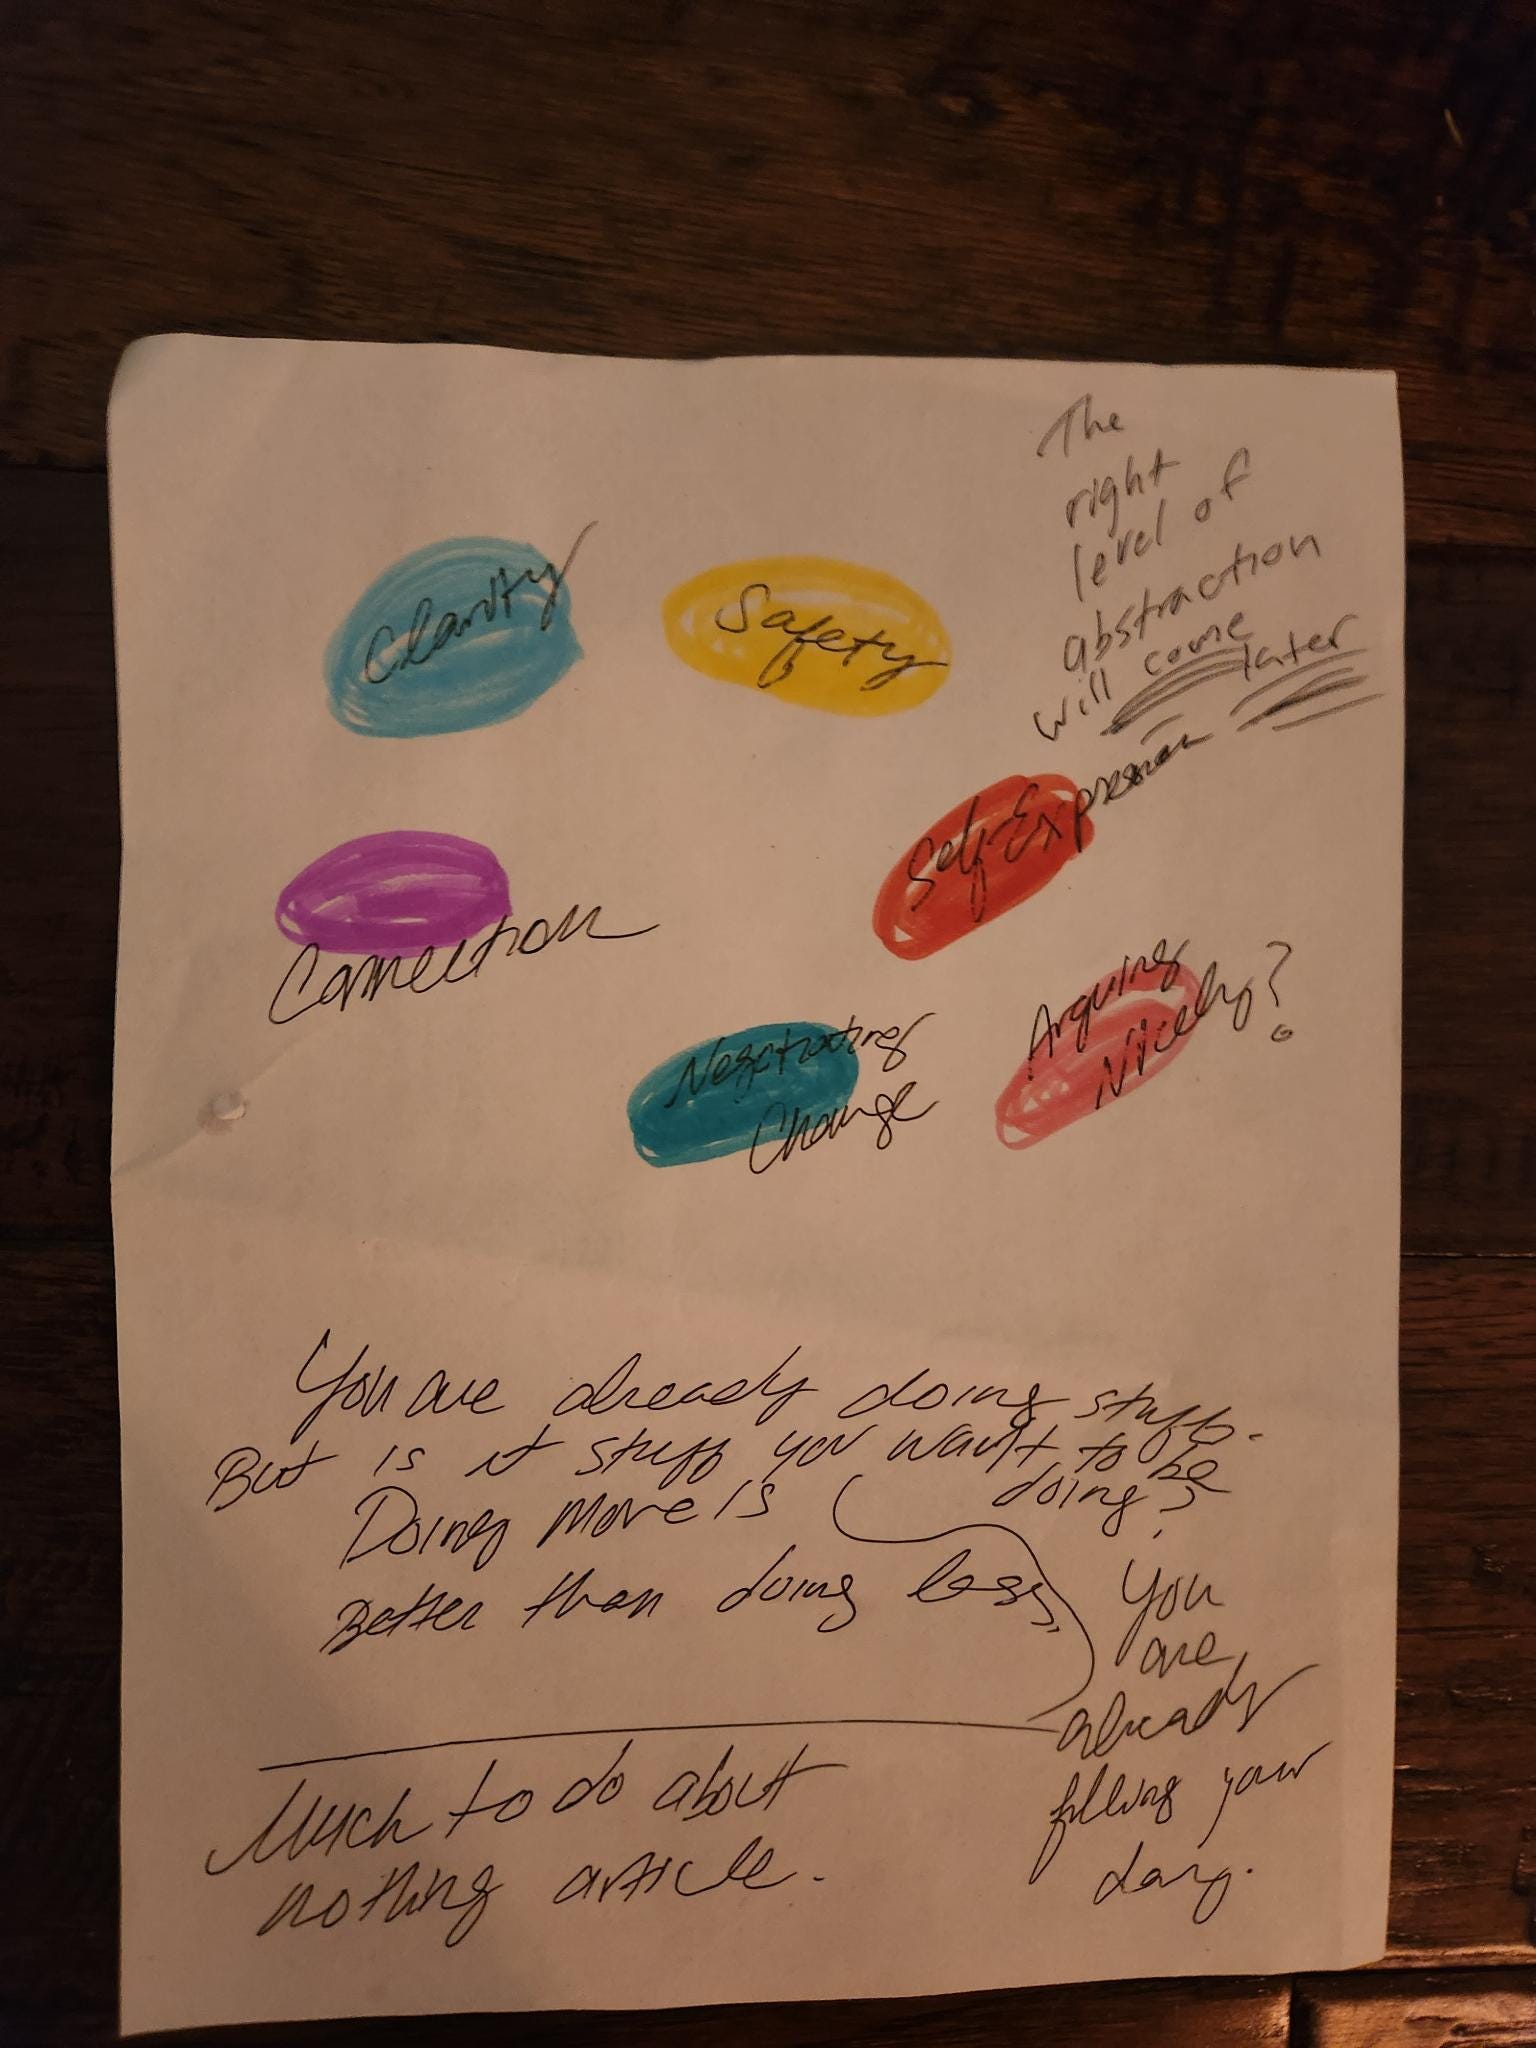 The
right
level of
abstraction
will come later
Clarity
Safety
Self-Expression
Connection
Arguing
Nicely?
Negotiating
Change
You are already doing stuff.
But is it stuff you want to be
doing?
Doing more is
Better than doing less,
You
are
already
filling your
day.
Much to do about
nothing article.